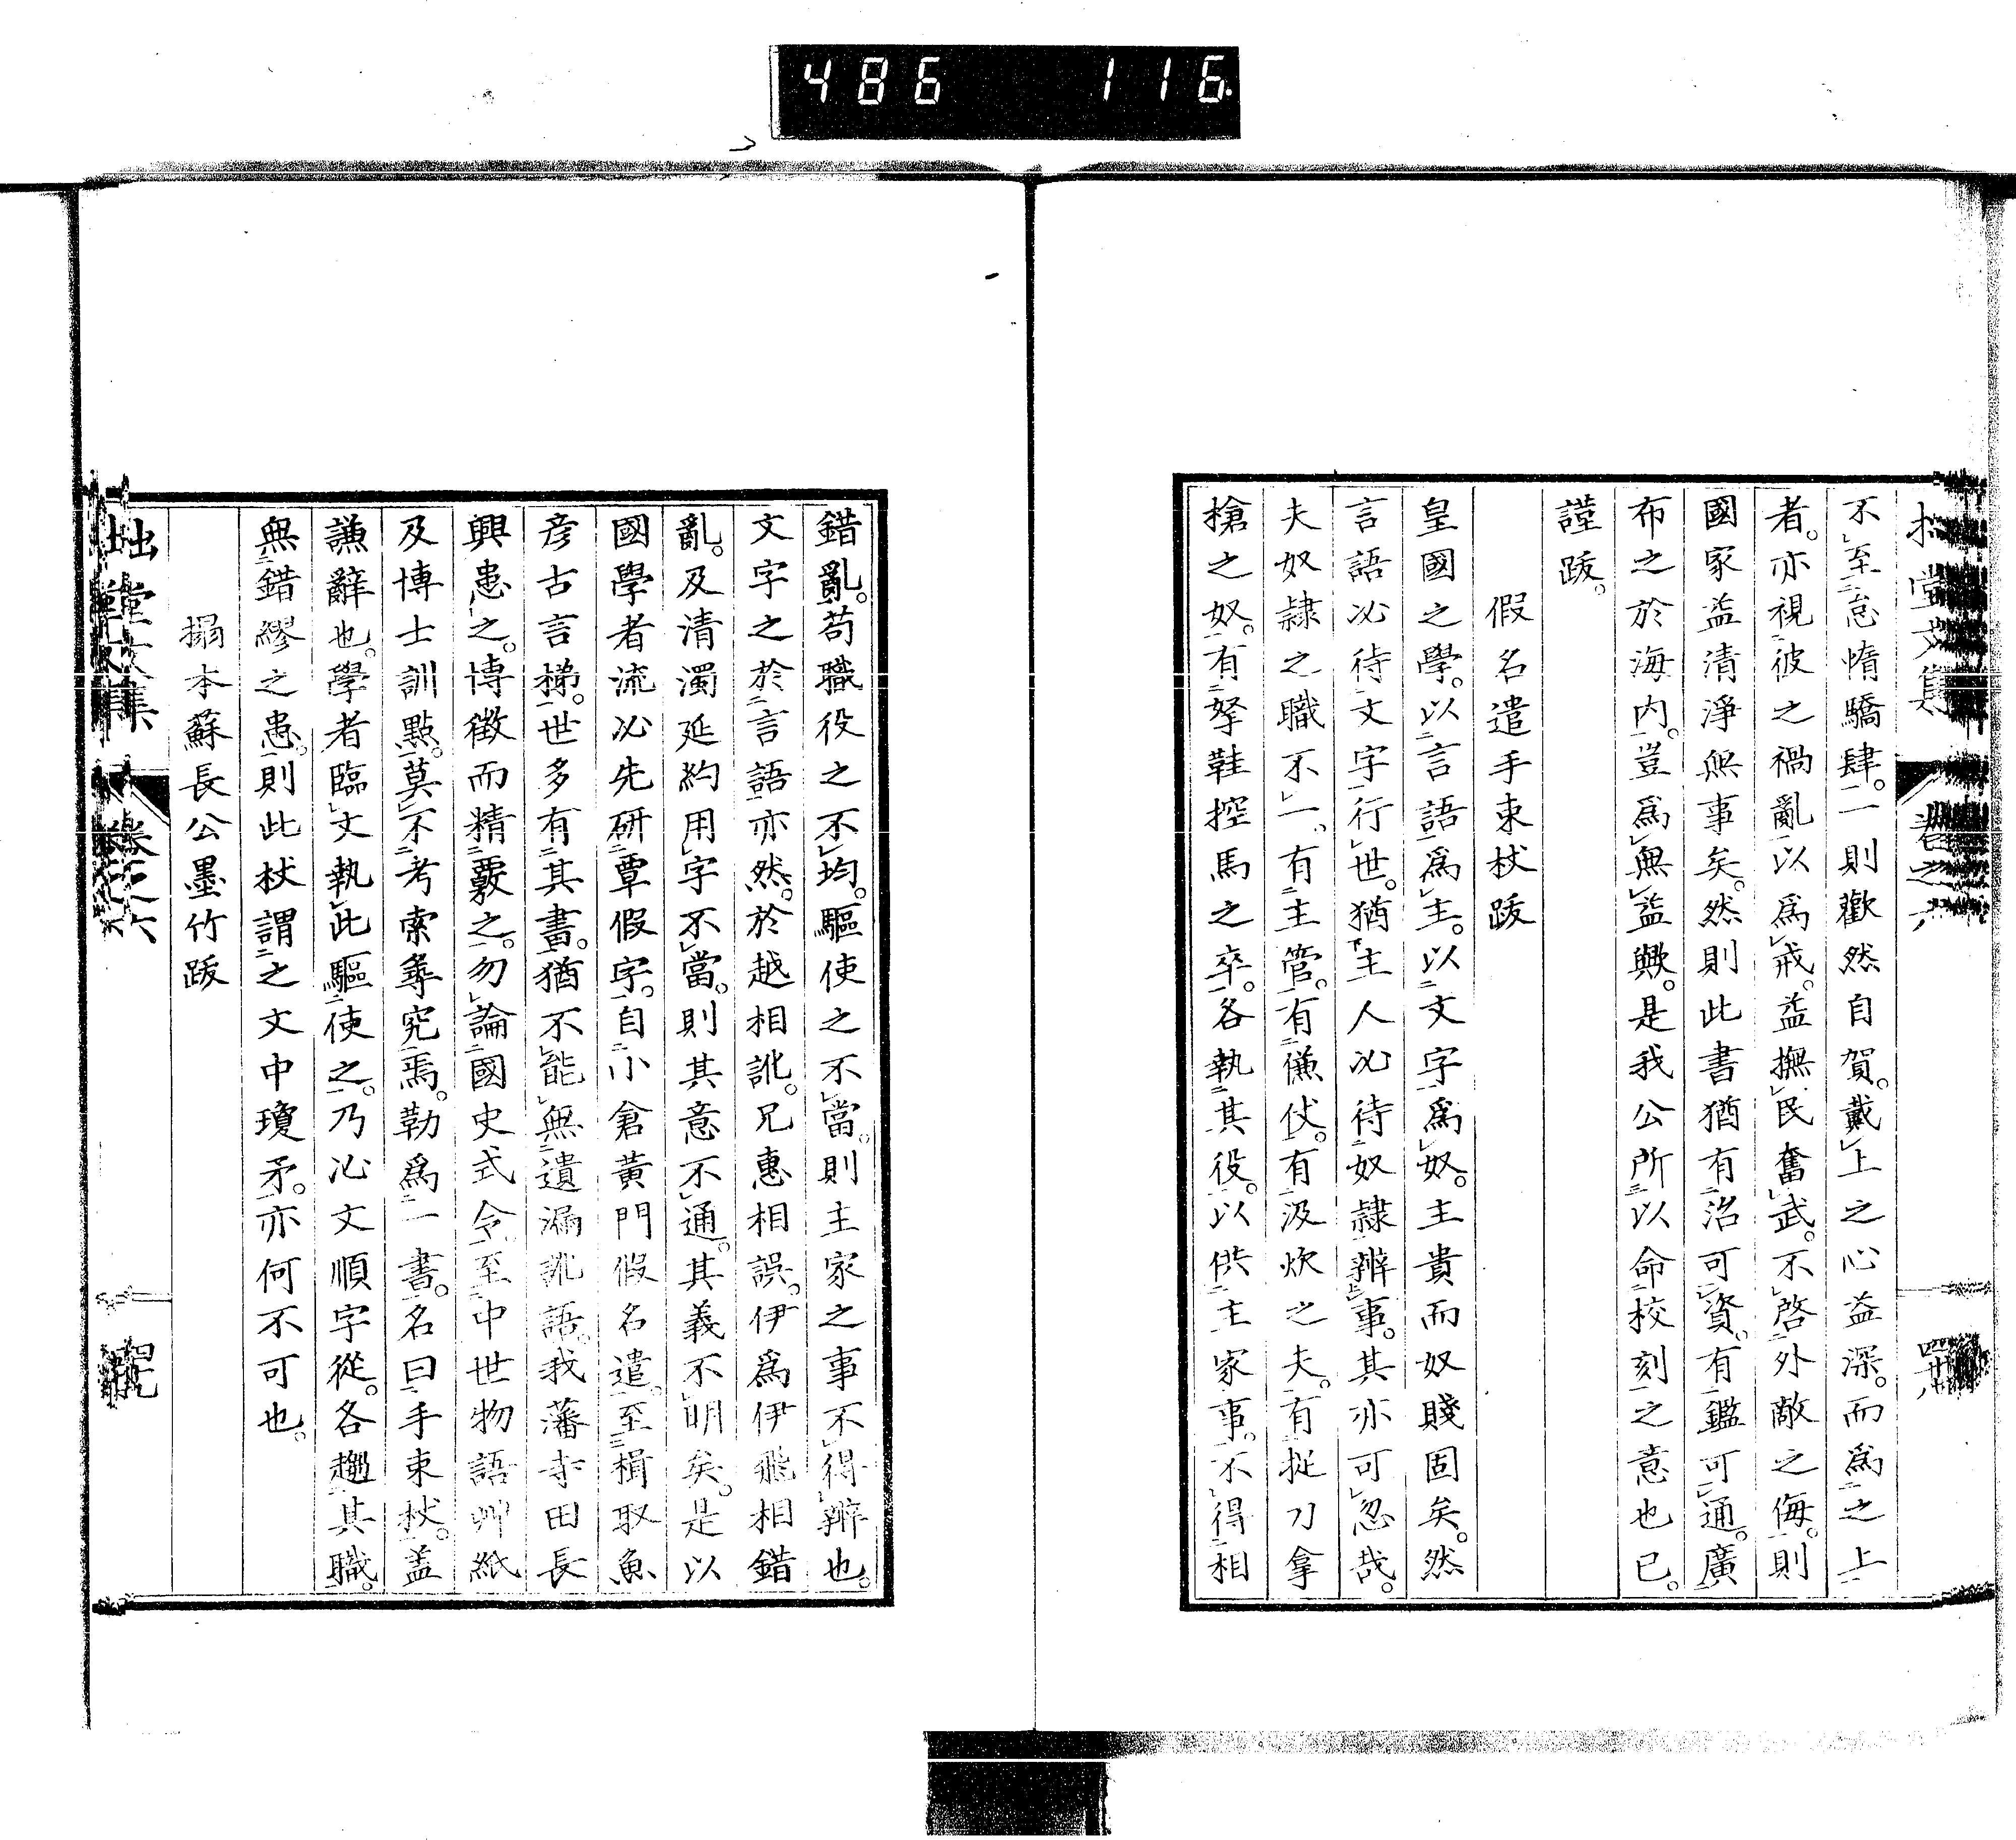 486 116
堂文集 卷之六
不至怠惰驕肆。一則歡然自賀。戴上之心益深。而爲之上
者。亦視彼之禍亂以爲戒。益撫民奮武。不啓外敵之侮。則
國家益清淨無事矣。然則此書猶有治可資。有鑑可通。廣
布之於海内。豈爲無益歟。是我公所以命校刻之意也已。
謹跋。
假名遣手束杖跋
皇國之學。以言語爲主。以文字爲奴。主貴而奴賤固矣。然
言語必待文字行世。猶主人必待奴隷辨事。其亦可忽哉。
夫奴隷之職不一。有主管。有傔仗。有汲炊之夫。有捉刀拿
槍之奴。有拏鞋控馬之卒。各執其役。以供主家事。不得相
錯亂。苟職役之不均。驅使之不當。則主家之事不得辨也。
文字之於言語亦然。於越相訛。兄惠相誤。伊爲伊飛相錯
亂。及清濁延約用字不當。則其意不通。其義不明矣。是以
國學者流必先研覃假字。自小倉黄門假名遣。至楫取魚
彦古言梯。世多有其書。猶不能無遺漏訛語。我藩寺田長
興患之。博徴而精覈之。勿論國史式令。至中世物語艸紙
及博士訓點。莫不考索尋究焉。勒爲一書。名曰手束杖。盖
謙辭也。學者臨文執此驅使之。乃必文順字從。各趨其職。
無錯繆之患。則此杖謂之文中瓊矛。亦何不可也。
搨本蘇長公墨竹跋
拙堂文集 卷之六